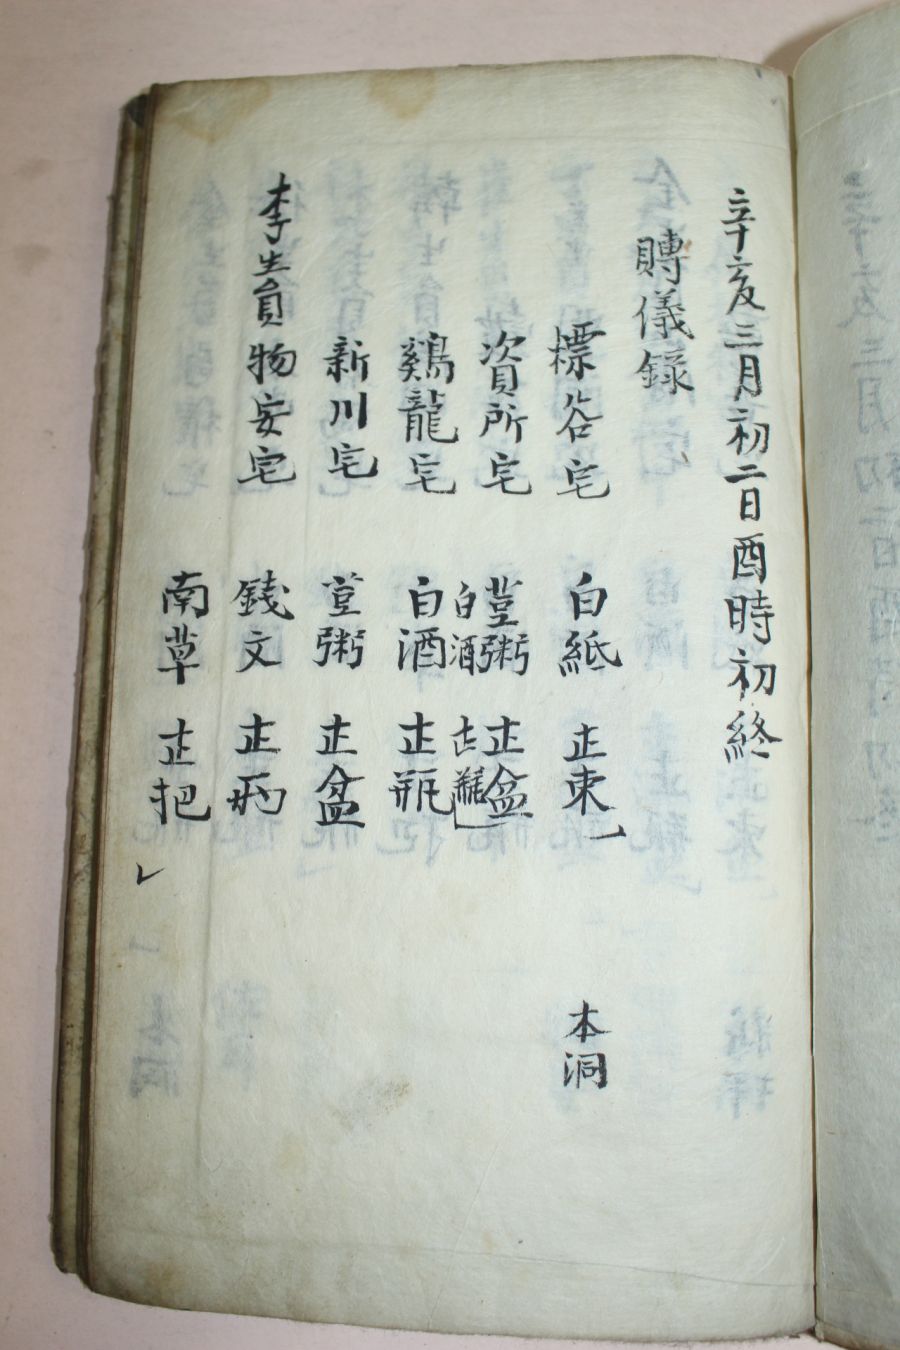 辛亥三月初二日酉時初終
賻儀錄
標谷宅 白紙 正束 本洞
資所宅 荳粥 正盆
白酒 正瓶
鷄龍宅 白酒 正瓶
新川宅 荳粥 正盆
李生員物安宅 錢文 正両
南草 正把